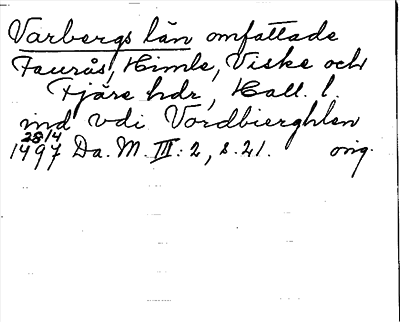 Varbergs län omfattade
Faurås, Himle, Viske och
Fjäre hdr, Hall. l.
ind vdi Vordbierghlen
28/4
1497 Da. M. III: 2, s. 21. orig.